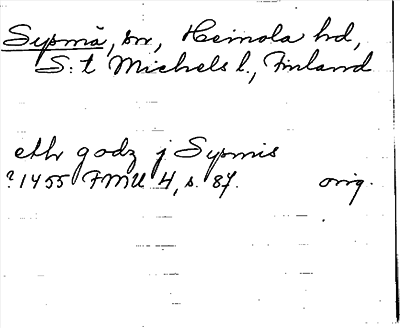 Sysmä, sn, Heinola hd,
S:t Michels l., Finland
ett godz j Sysmis
? 1455 FMU 4, s. 87. orig.